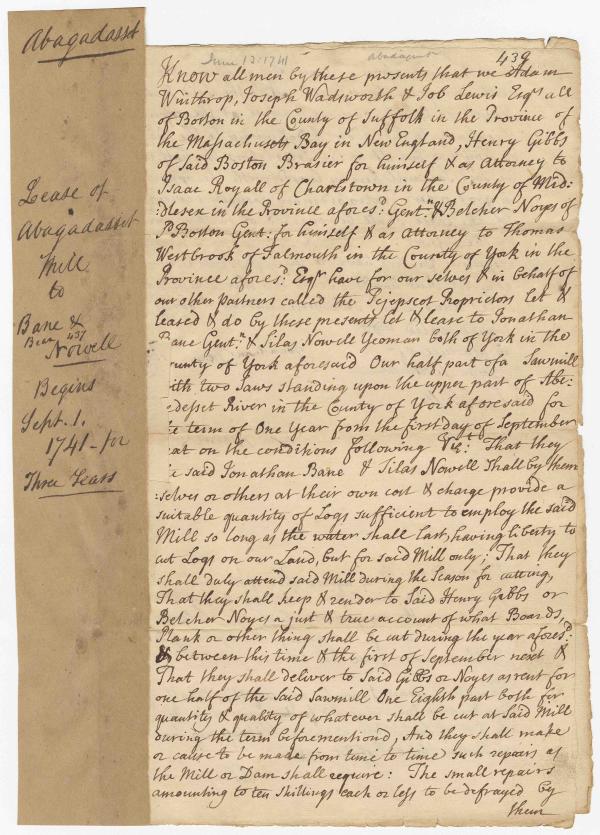 Abagadasset
Lease of
Abagadasset
Mill
to
Bane &
Bean 437
Nowell
Begins
Sept. 1.
1741 - for
Three Years
June 12. 1741
439
Know all men by these presents that we Adam
Winthrop, Joseph Wadsworth & Job Lewis Esqrs all
of Boston in the County of Suffolk in the Province of
the Massachusets Bay in New England, Henry Gibbs
of Said Boston Brazier for himself & as Attorney to
Isaac Royall of Charlstown in the County of Mid:
:dlesex in the Province afores.d Gent.n & Belcher Noyes of
s.d Boston Gent: for himself & as Attorney to Thomas
Westbrook of Falmouth in the County of York in the
Province afores.d Esq.r have for our selves & in behalf of
our other Partners called the Pejepscot Proprietors let &
leased & do by these presents let & lease to Jonathan
Bane Gent.n & Silas Nowell Yeoman both of York in the
ounty of York aforesaid Our half part of a Sawmill
ith two Saws standing upon the upper part of Abe:
:depset River in the County of York aforesaid for
e term of One Year from the first day of September
at on the conditions following Viz.t That they
e said Jonathan Bane & Silas Nowell Shall by them
:selves or others at their own cost & charge provide a
suitable quantity of Logs sufficient to employ the said
Mill so long as the water shall last, having liberty to
cut Logs on our Land, but for said Mill only: That they
shall duly attend said Mill during the Season for cutting,
That they shall keep & render to Said Henry Gibbs or
Belcher Noyes a just & true account of what Boards,
Plank or other thing shall be cut during the year afores.d
& between this time & the first of September next &
That they shall deliver to Said Gibbs or Noyes as rent for
one half of the Said Sawmill One Eighth part both for
quantity & quality of whatever shall be cut at Said Mill
during the term beforementiond, And they shall make
or cause to be made from time to time such repairs as
the Mill or Dam shall require: The small repairs
amounting to ten shillings each or less to be defrayed by
them